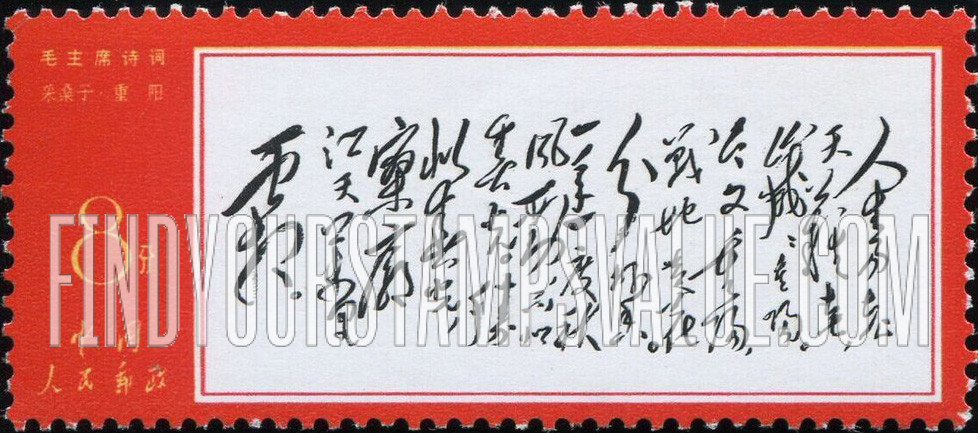 毛主席诗词
采桑子·重阳
8分
中国
人民邮政
人生易老
天難老
歲歲重陽
今又重陽,
戰地黄花
分外香。
一年一度秋
風勁不似
春光勝
似春光,
寥廓
江天萬里
霜
FINDYOURSTAMPSVALUE.COM